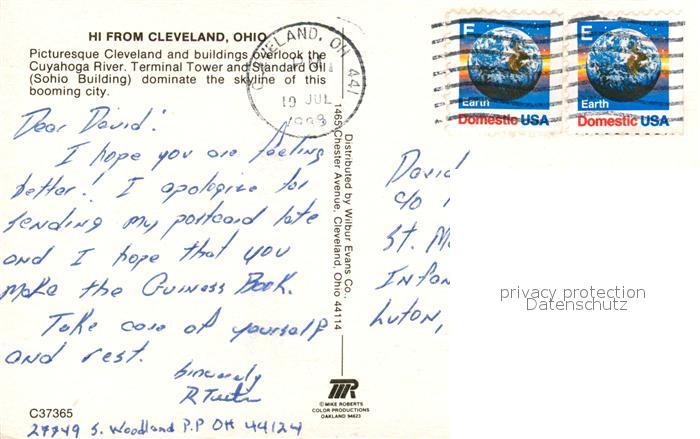 HI FROM CLEVELAND, OHIO
Picturesque Cleveland and buildings overlook the
Cuyahoga River. Terminal Tower and Standard Oil
(Sohio Building) dominate the skyline of this
booming city.
CLEVELAND, OH 441
10 JUL
E
Earth
Domestic USA
E
Earth
Domestic USA
Dear David!
I hope you are feeling
better! I apologize for
sending my postcard late
and I hope that you
make the Guiness Book.
Take care of yourself
and rest.
Sincerely
R
27749 S. Woodland P.P OH 44124
C37365
Distributed by Wilbur Evans Co.,
1465 Chester Avenue, Cleveland, Ohio 44114
©MIKE ROBERTS
COLOR PRODUCTIONS
OAKLAND 94623
David
c/o
St. M
Infan
Luton,
privacy protection
Datenschutz